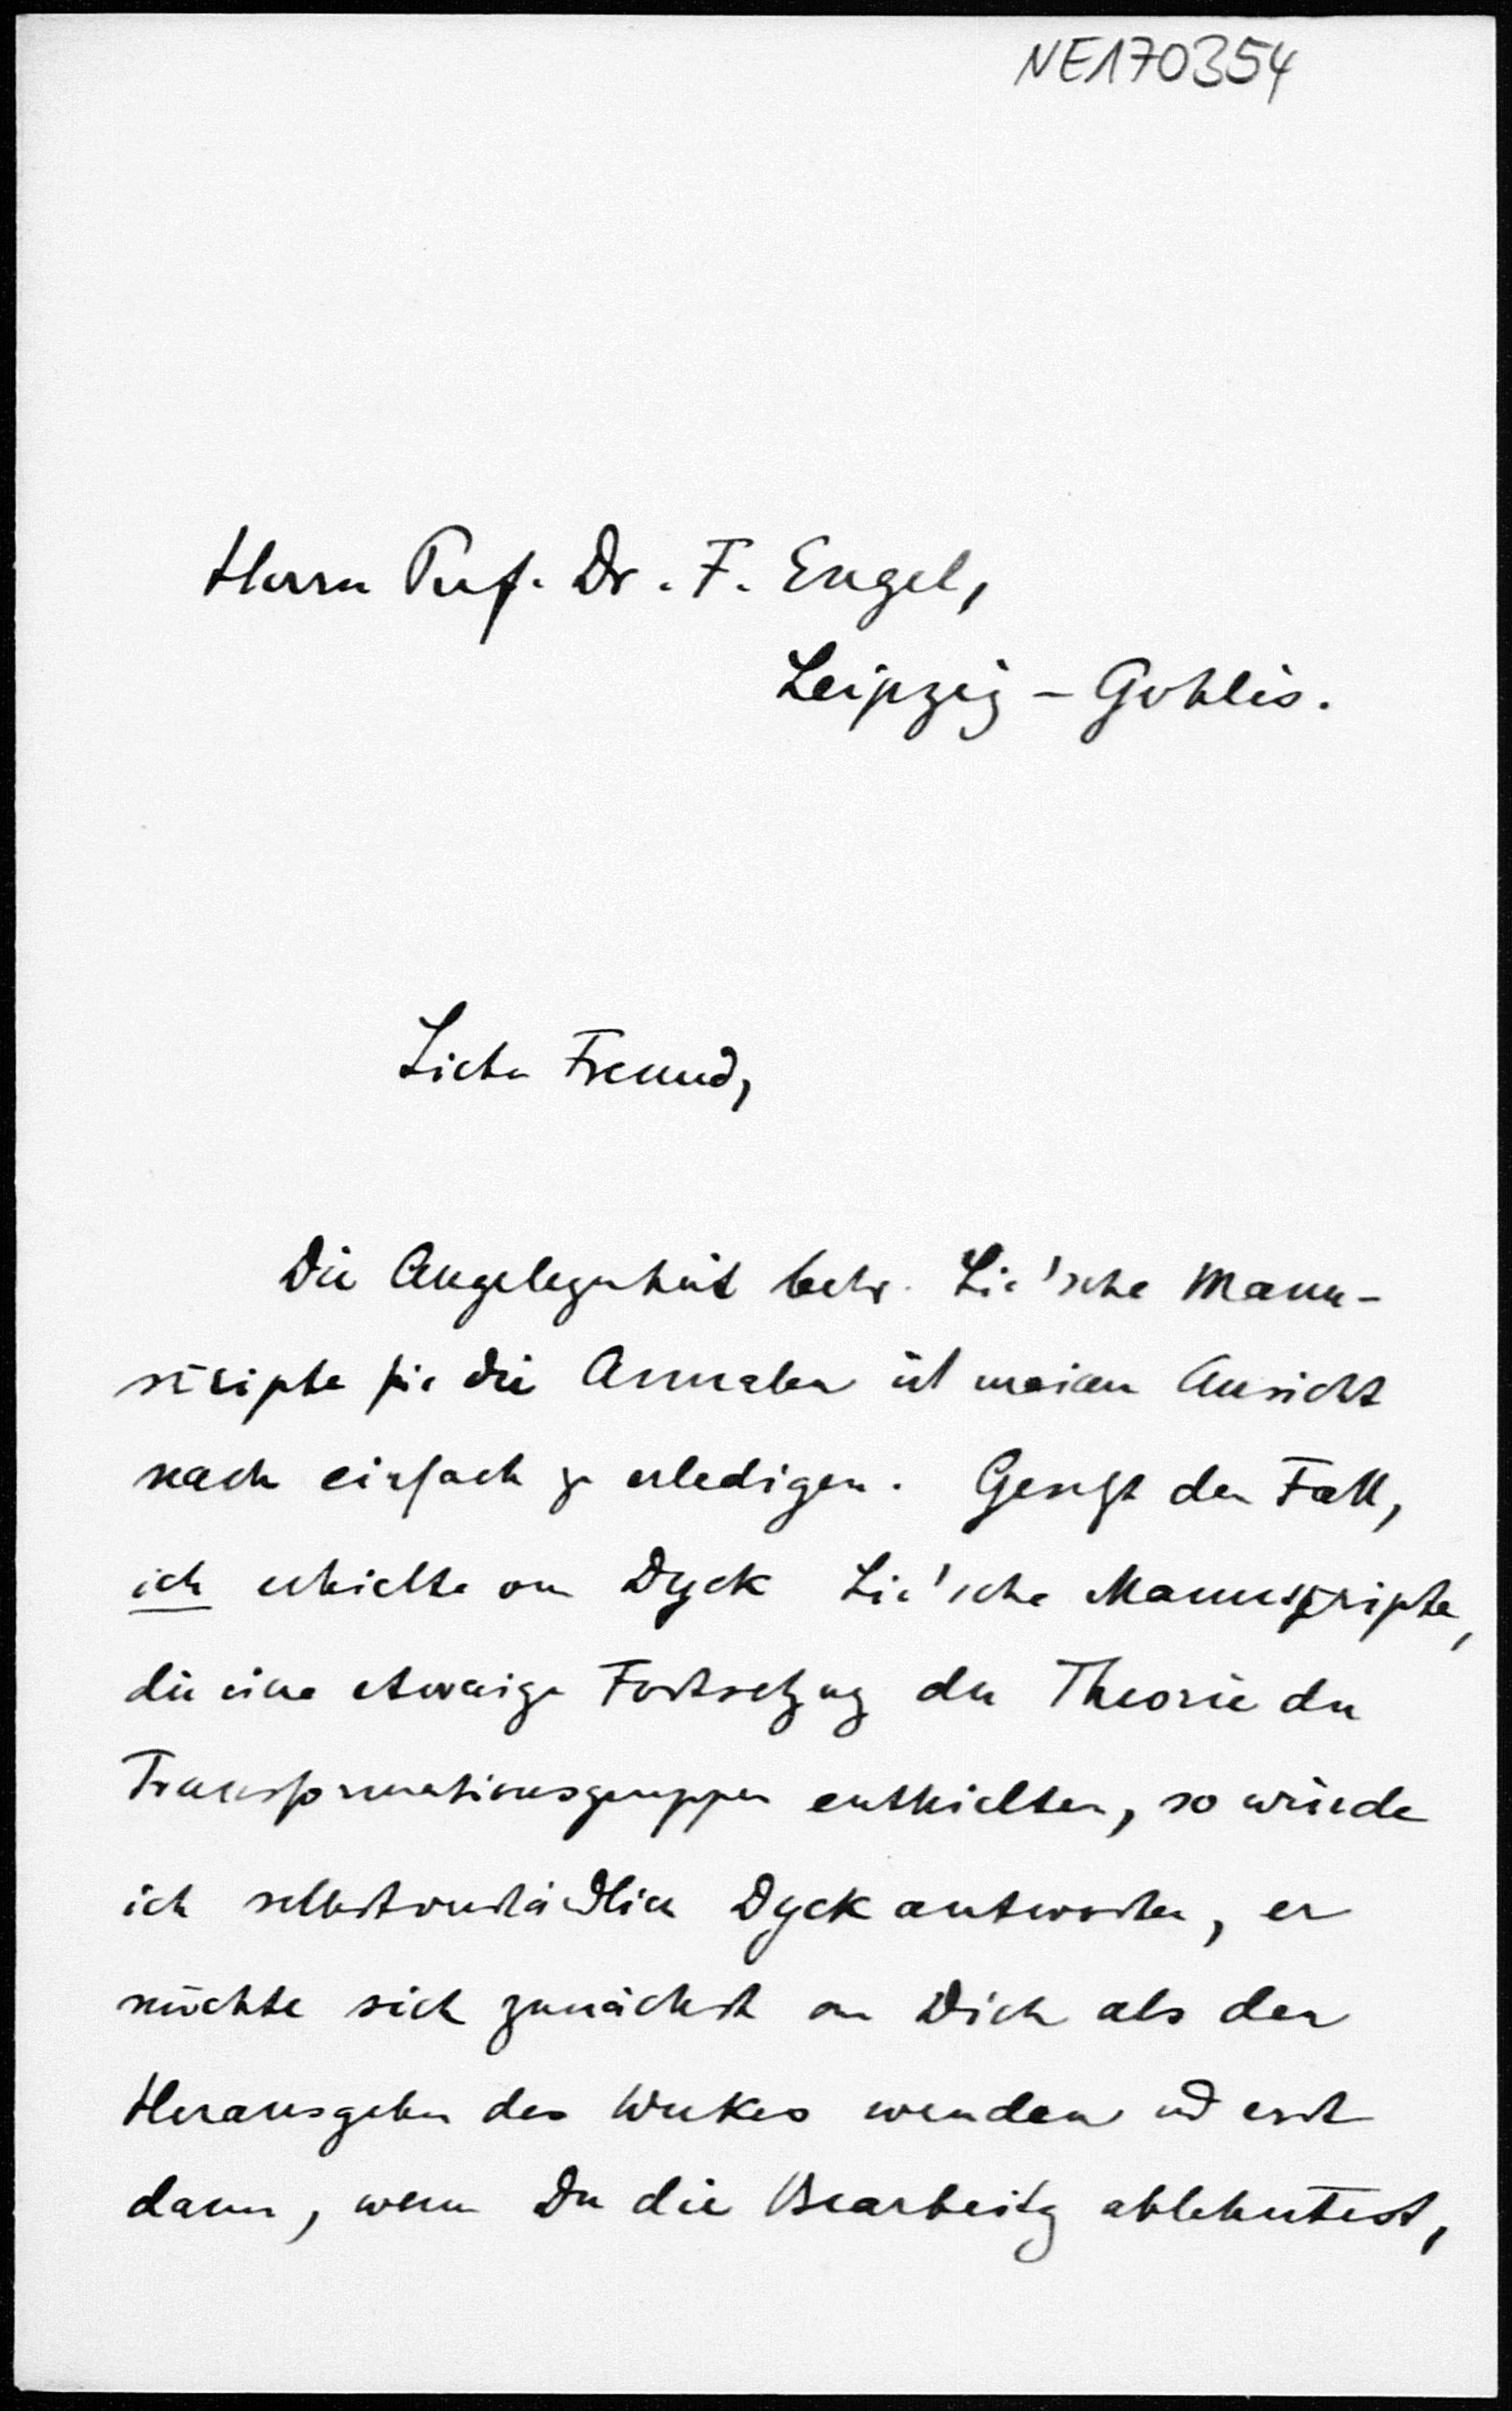 NE170354
Herrn Prof. Dr. F. Engel,
Leipzig - Gohlis.
Lieber Freund,
Die Angelegenheit betr. Lie'sche Manu-
scripte für die Annalen ist meiner Ansicht
nach einfach zu erledigen. Gesetzt den Fall,
ich erhielte von Dyck Lie'sche Manuscripte,
die eine etwaige Fortsetzung der Theorie der
Transformationsgruppen enthielten, so würde
ich selbstverständlich Dyck antworten, er
möchte sich zunächst an Dich als den
Herausgeber des Werkes wenden und erst
dann, wenn Du die Bearbeitg ablehntest,